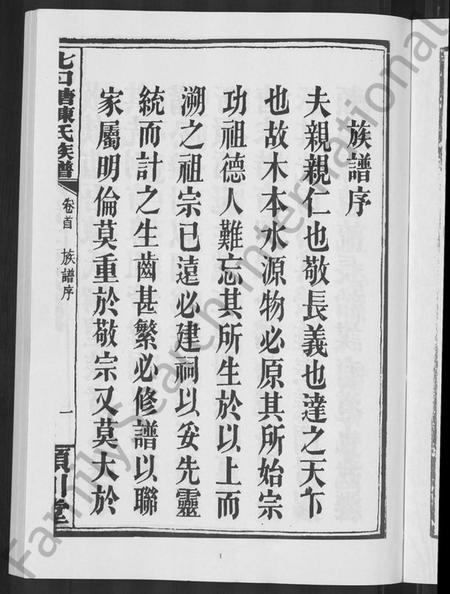 族譜序
夫親親仁也敬長義也達之天下
也故木本水源物必原其所始宗
功祖德人難忘其所生於以上而
溯之祖宗已遠必建祠以妥先靈
統而計之生齒甚繁必修譜以聯
家屬明倫莫重於敬宗又莫大於
七口塘陳氏族譜
卷首
族譜序
一
潁川堂
1
FamilySearch International